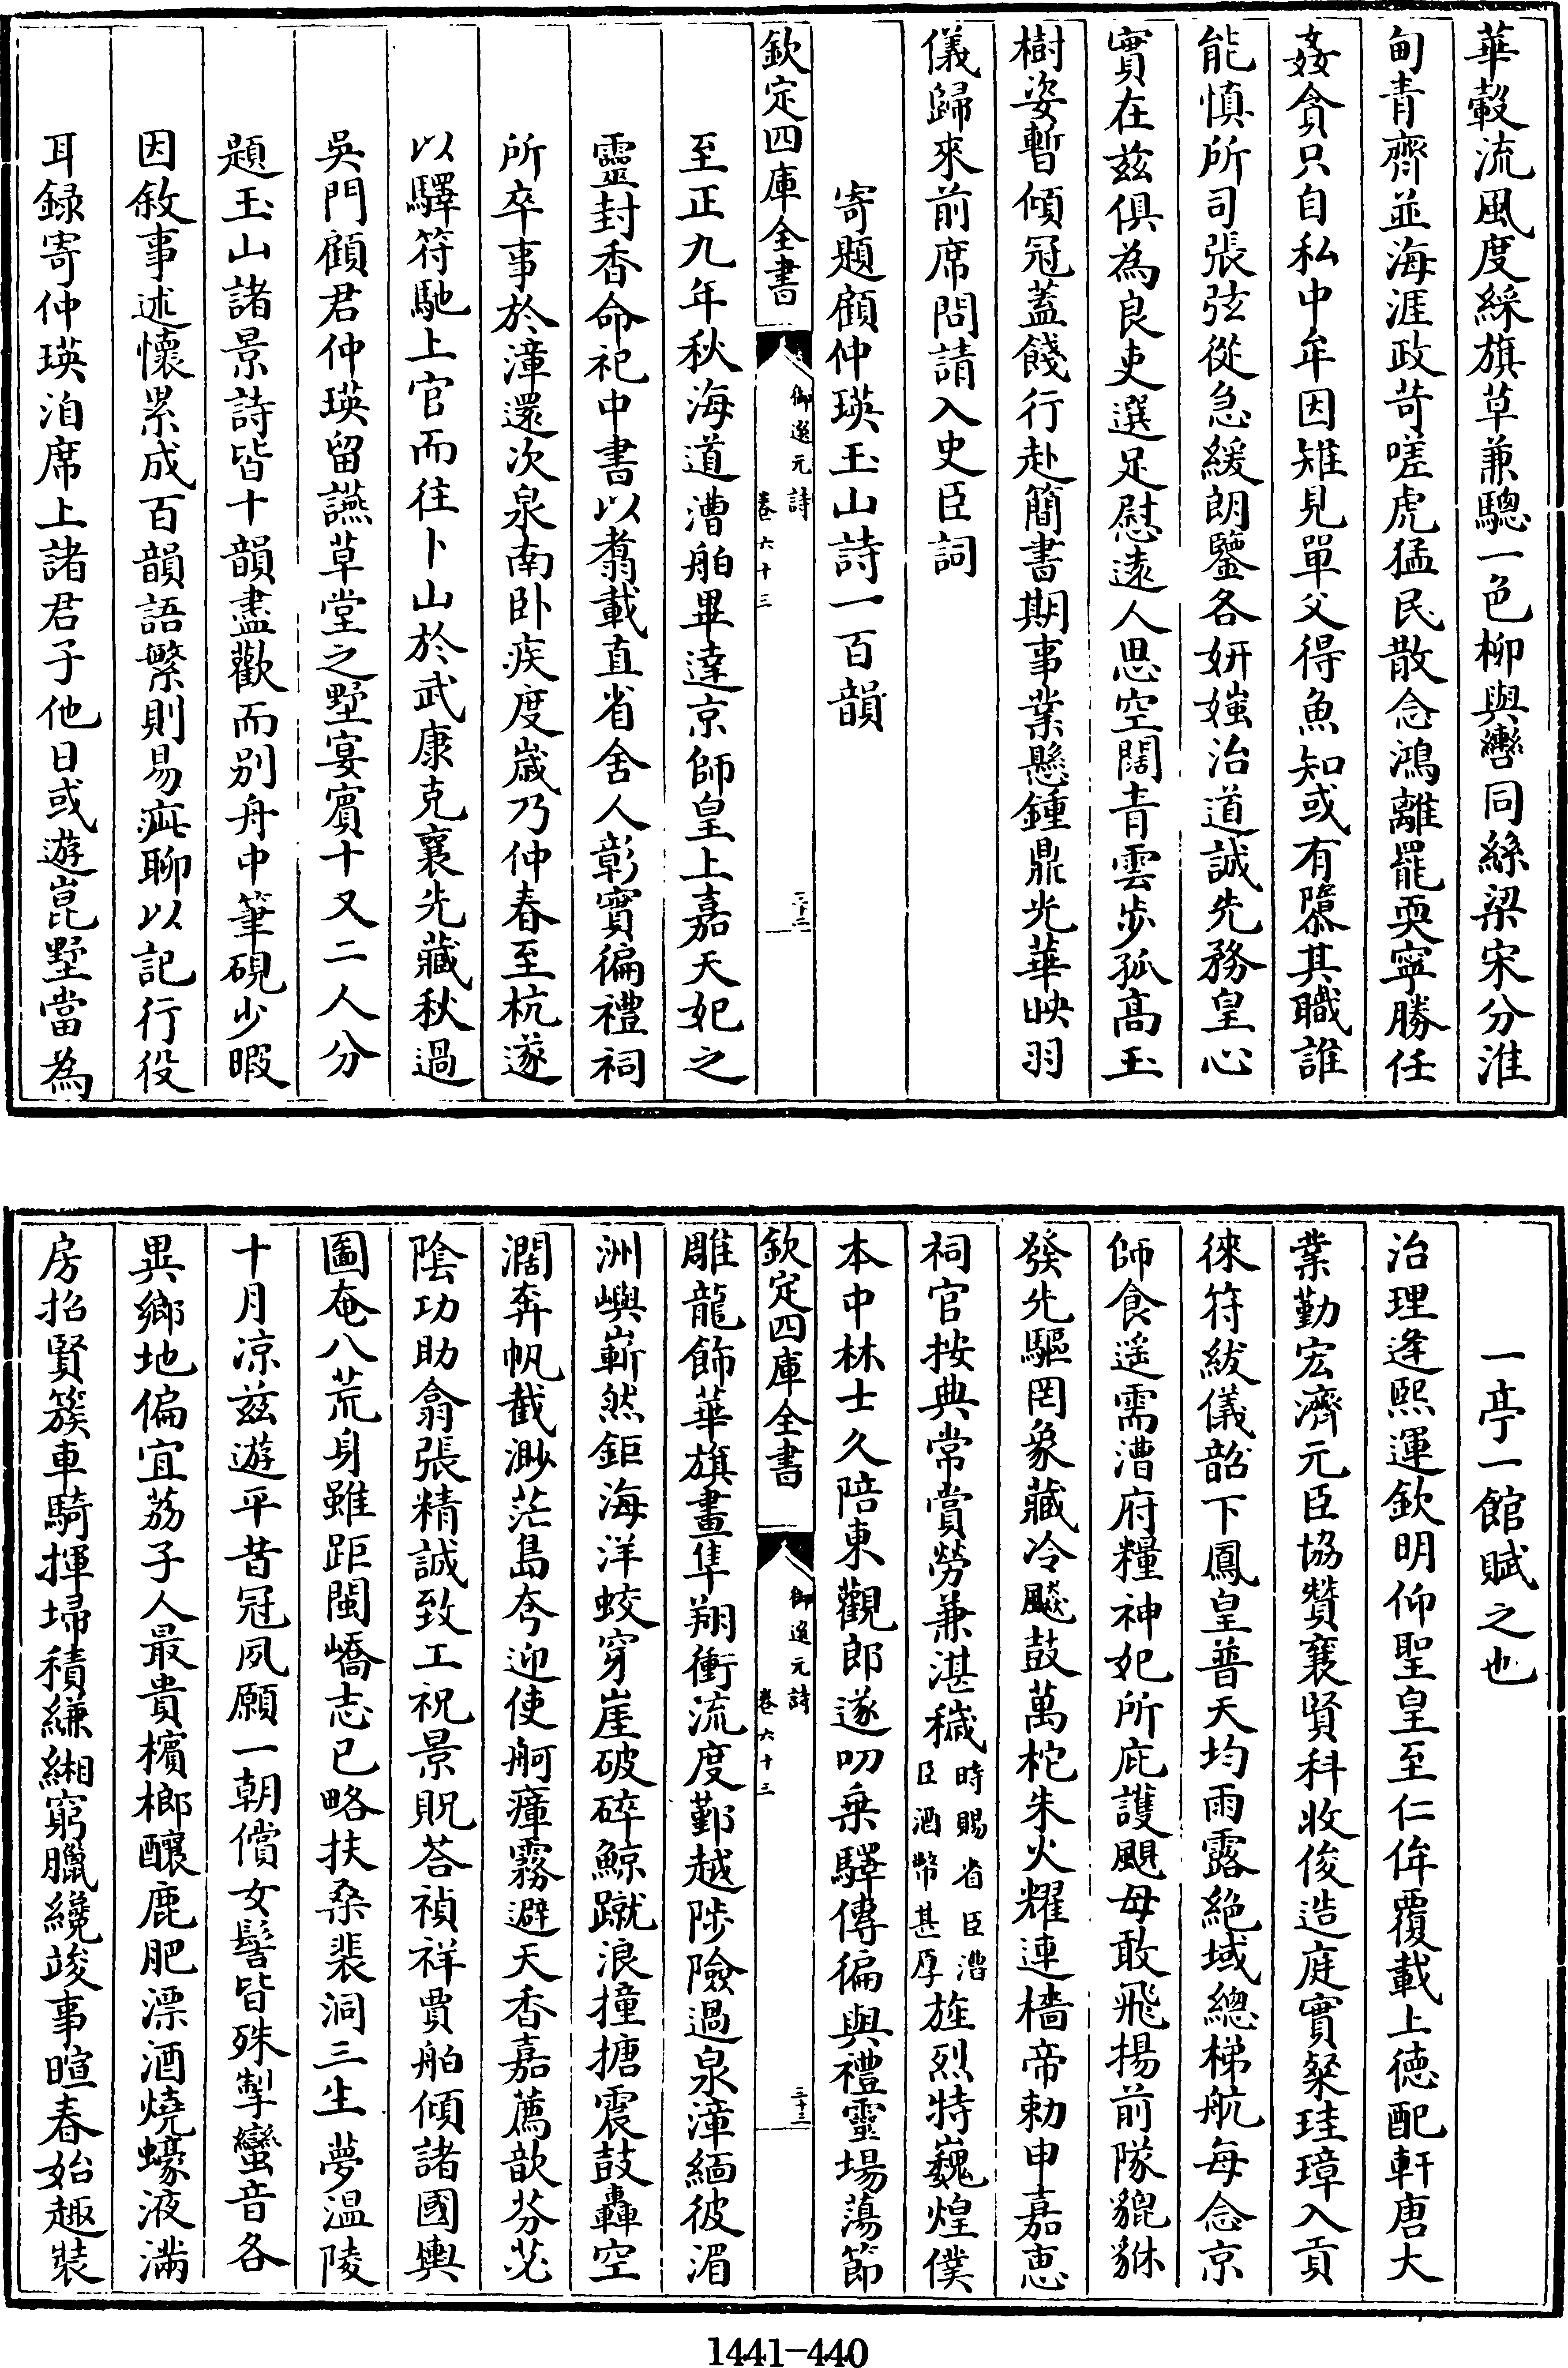 華轂流風度綵旗草兼驄一色柳與轡同絲梁宋分淮
甸青齊並海涯政苛嗟虎猛民散念鴻離罷耎寧勝任
姦貪只自私中牟因雉見單父得魚知或有隳其職誰
能慎所司張弦從急緩朗鑒各妍媸治道誠先務皇心
實在兹俱為良吏選足慰逺人思空闊青雲步孤髙玉
樹姿暫傾冠蓋餞行赴簡書期事業懸鍾鼎光華映羽
儀歸來前席問請入史臣詞
寄題顧仲瑛玉山詩一百韻
欽定四庫全書
御選元詩
卷六十三
三十二
至正九年秋海道漕舶畢達京師皇上嘉天妃之
靈封香命祀中書以翥載直省舍人彰實徧禮祠
所卒事於漳還次泉南卧疾度歲乃仲春至杭遂
以驛符馳上官而往卜山於武康克襄先藏秋過
吳門顧君仲瑛留讌草堂之墅宴賓十又二人分
題玉山諸景詩皆十韻盡歡而别舟中筆硯少暇
因敘事述懷累成百韻語繁則易疵聊以記行役
耳録寄仲瑛洎席上諸君子他日或遊崑墅當為
一亭一館賦之也
治理逢熙運欽明仰聖皇至仁侔覆載上徳配軒唐大
業勤宏濟元臣協贊襄賢科收俊造庭實粲珪璋入貢
徠符紱儀韶下鳳皇普天均雨露絶域總梯航每念京
師食遥需漕府糧神妃所庇護颶母敢飛揚前隊貔貅
發先驅罔象藏冷飈鼓萬柁朱火耀連檣帝勅申嘉惠
祠官按典常賞勞兼湛穢時賜省臣漕臣酒幣甚厚旌烈特巍煌僕
本中林士久陪東觀郎遂叨乗驛傳徧與禮靈場蕩節
欽定四庫全書
御選元詩
卷六十三
三十三
雕龍飾華旗畫隼翔衝流度鄞越陟險過泉漳緬彼湄
洲嶼嶄然鉅海洋蛟穿崖破碎鯨蹴浪撞搪震鼓轟空
濶奔帆截渺茫島夸迎使舸瘴霧避天香嘉薦歆芬苾
陰功助翕張精誠致工祝景貺荅禎祥賈舶傾諸國輿
圖奄八荒身雖距閩嶠志已略扶桑裴洞三生夢温陵
十月凉兹遊平昔冠夙願一朝償女髻皆殊製蠻音各
異鄉地偏宜荔子人最貴檳榔釀鹿肥漂酒燒蠔液滿
房招賢簇車騎揮埽積縑緗窮臘纔竣事暄春始趣裝
1441-440